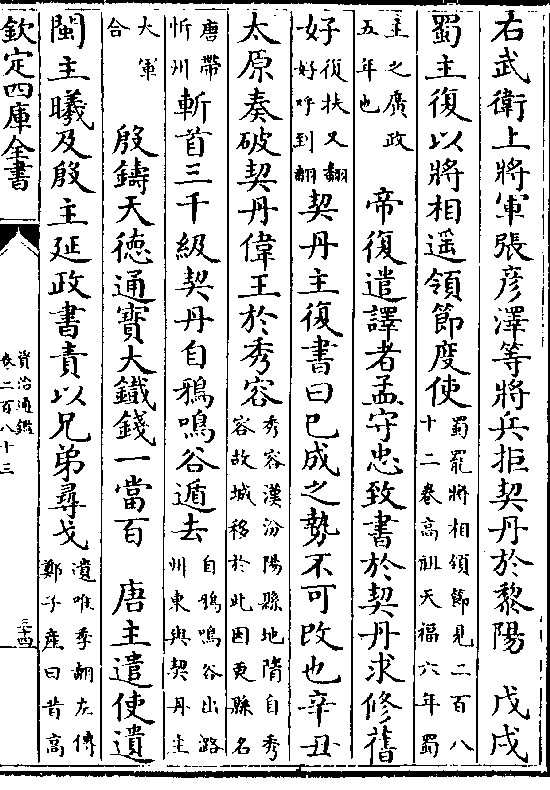 右武衛上將軍張彦澤等將兵拒契丹於黎陽　戊戌
蜀主復以將相遥領節度使蜀罷將相領節見二百八十二卷高祖天福六年蜀
主之廣政五年也　帝復遣譯者孟守忠致書於契丹求修舊
好復扶又翻好呼到翻契丹主復書曰已成之勢不可改也辛丑
太原奏破契丹偉王於秀容秀容漢汾陽縣地隋自秀容故城移於此因更縣名
唐帶忻州斬首三千級契丹自鴉鳴谷遁去自鴉鳴谷出潞州東與契丹主
大軍合　殷鑄天德通寶大鐵錢一當百　唐主遣使遺
閩主曦及殷主延政書責以兄弟尋戈遺唯季翻左傳鄭子産曰昔高
欽定四庫全書
資治通鑑
卷二百八十三
三十四